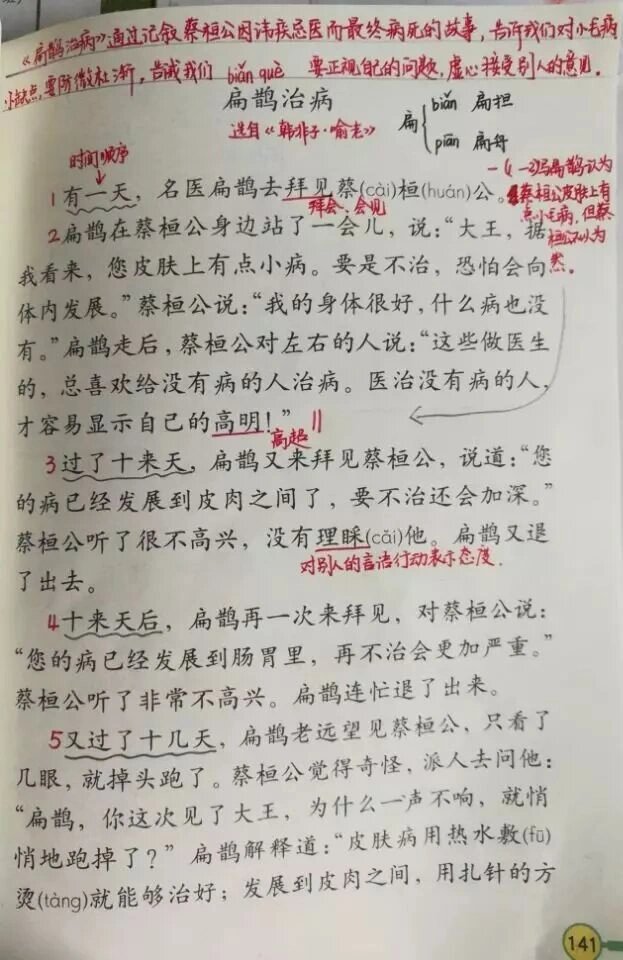 《扁鹊治病》通过记叙蔡桓公因讳疾忌医而最终病死的故事，告诉我们对小毛病
小缺点，要防微杜渐，告诫我们 要正视自己的问题，虚心接受别人的意见。
biǎn què
扁鹊治病
选自《韩非子·喻老》
扁
biǎn 扁担
piān 扁舟
时间顺序
1有一天，名医扁鹊去拜见蔡(cài)桓(huán)公。
拜会、会见
一(1-2)写扁鹊认为
蔡桓公皮肤上有
点小毛病，但蔡
桓公不以为
然。
2扁鹊在蔡桓公身边站了一会儿，说：“大王，据
我看来，您皮肤上有点小病。要是不治，恐怕会向
体内发展。”蔡桓公说：“我的身体很好，什么病也没
有。”扁鹊走后，蔡桓公对左右的人说：“这些做医生
的，总喜欢给没有病的人治病。医治没有病的人，
才容易显示自己的高明！”
高超
3过了十来天，扁鹊又来拜见蔡桓公，说道：“您
的病已经发展到皮肉之间了，要不治还会加深。”
蔡桓公听了很不高兴，没有理睬(cǎi)他。扁鹊又退
对别人的言语行动表示态度.
了出去。
4十来天后，扁鹊再一次来拜见，对蔡桓公说：
“您的病已经发展到肠胃里，再不治会更加严重。”
蔡桓公听了非常不高兴。扁鹊连忙退了出来。
5又过了十几天，扁鹊老远望见蔡桓公，只看了
几眼，就掉头跑了。蔡桓公觉得奇怪，派人去问他：
“扁鹊，你这次见了大王，为什么一声不响，就悄
悄地跑掉了？”扁鹊解释道：“皮肤病用热水敷(fū)
烫(tàng)就能够治好；发展到皮肉之间，用扎针的方
141